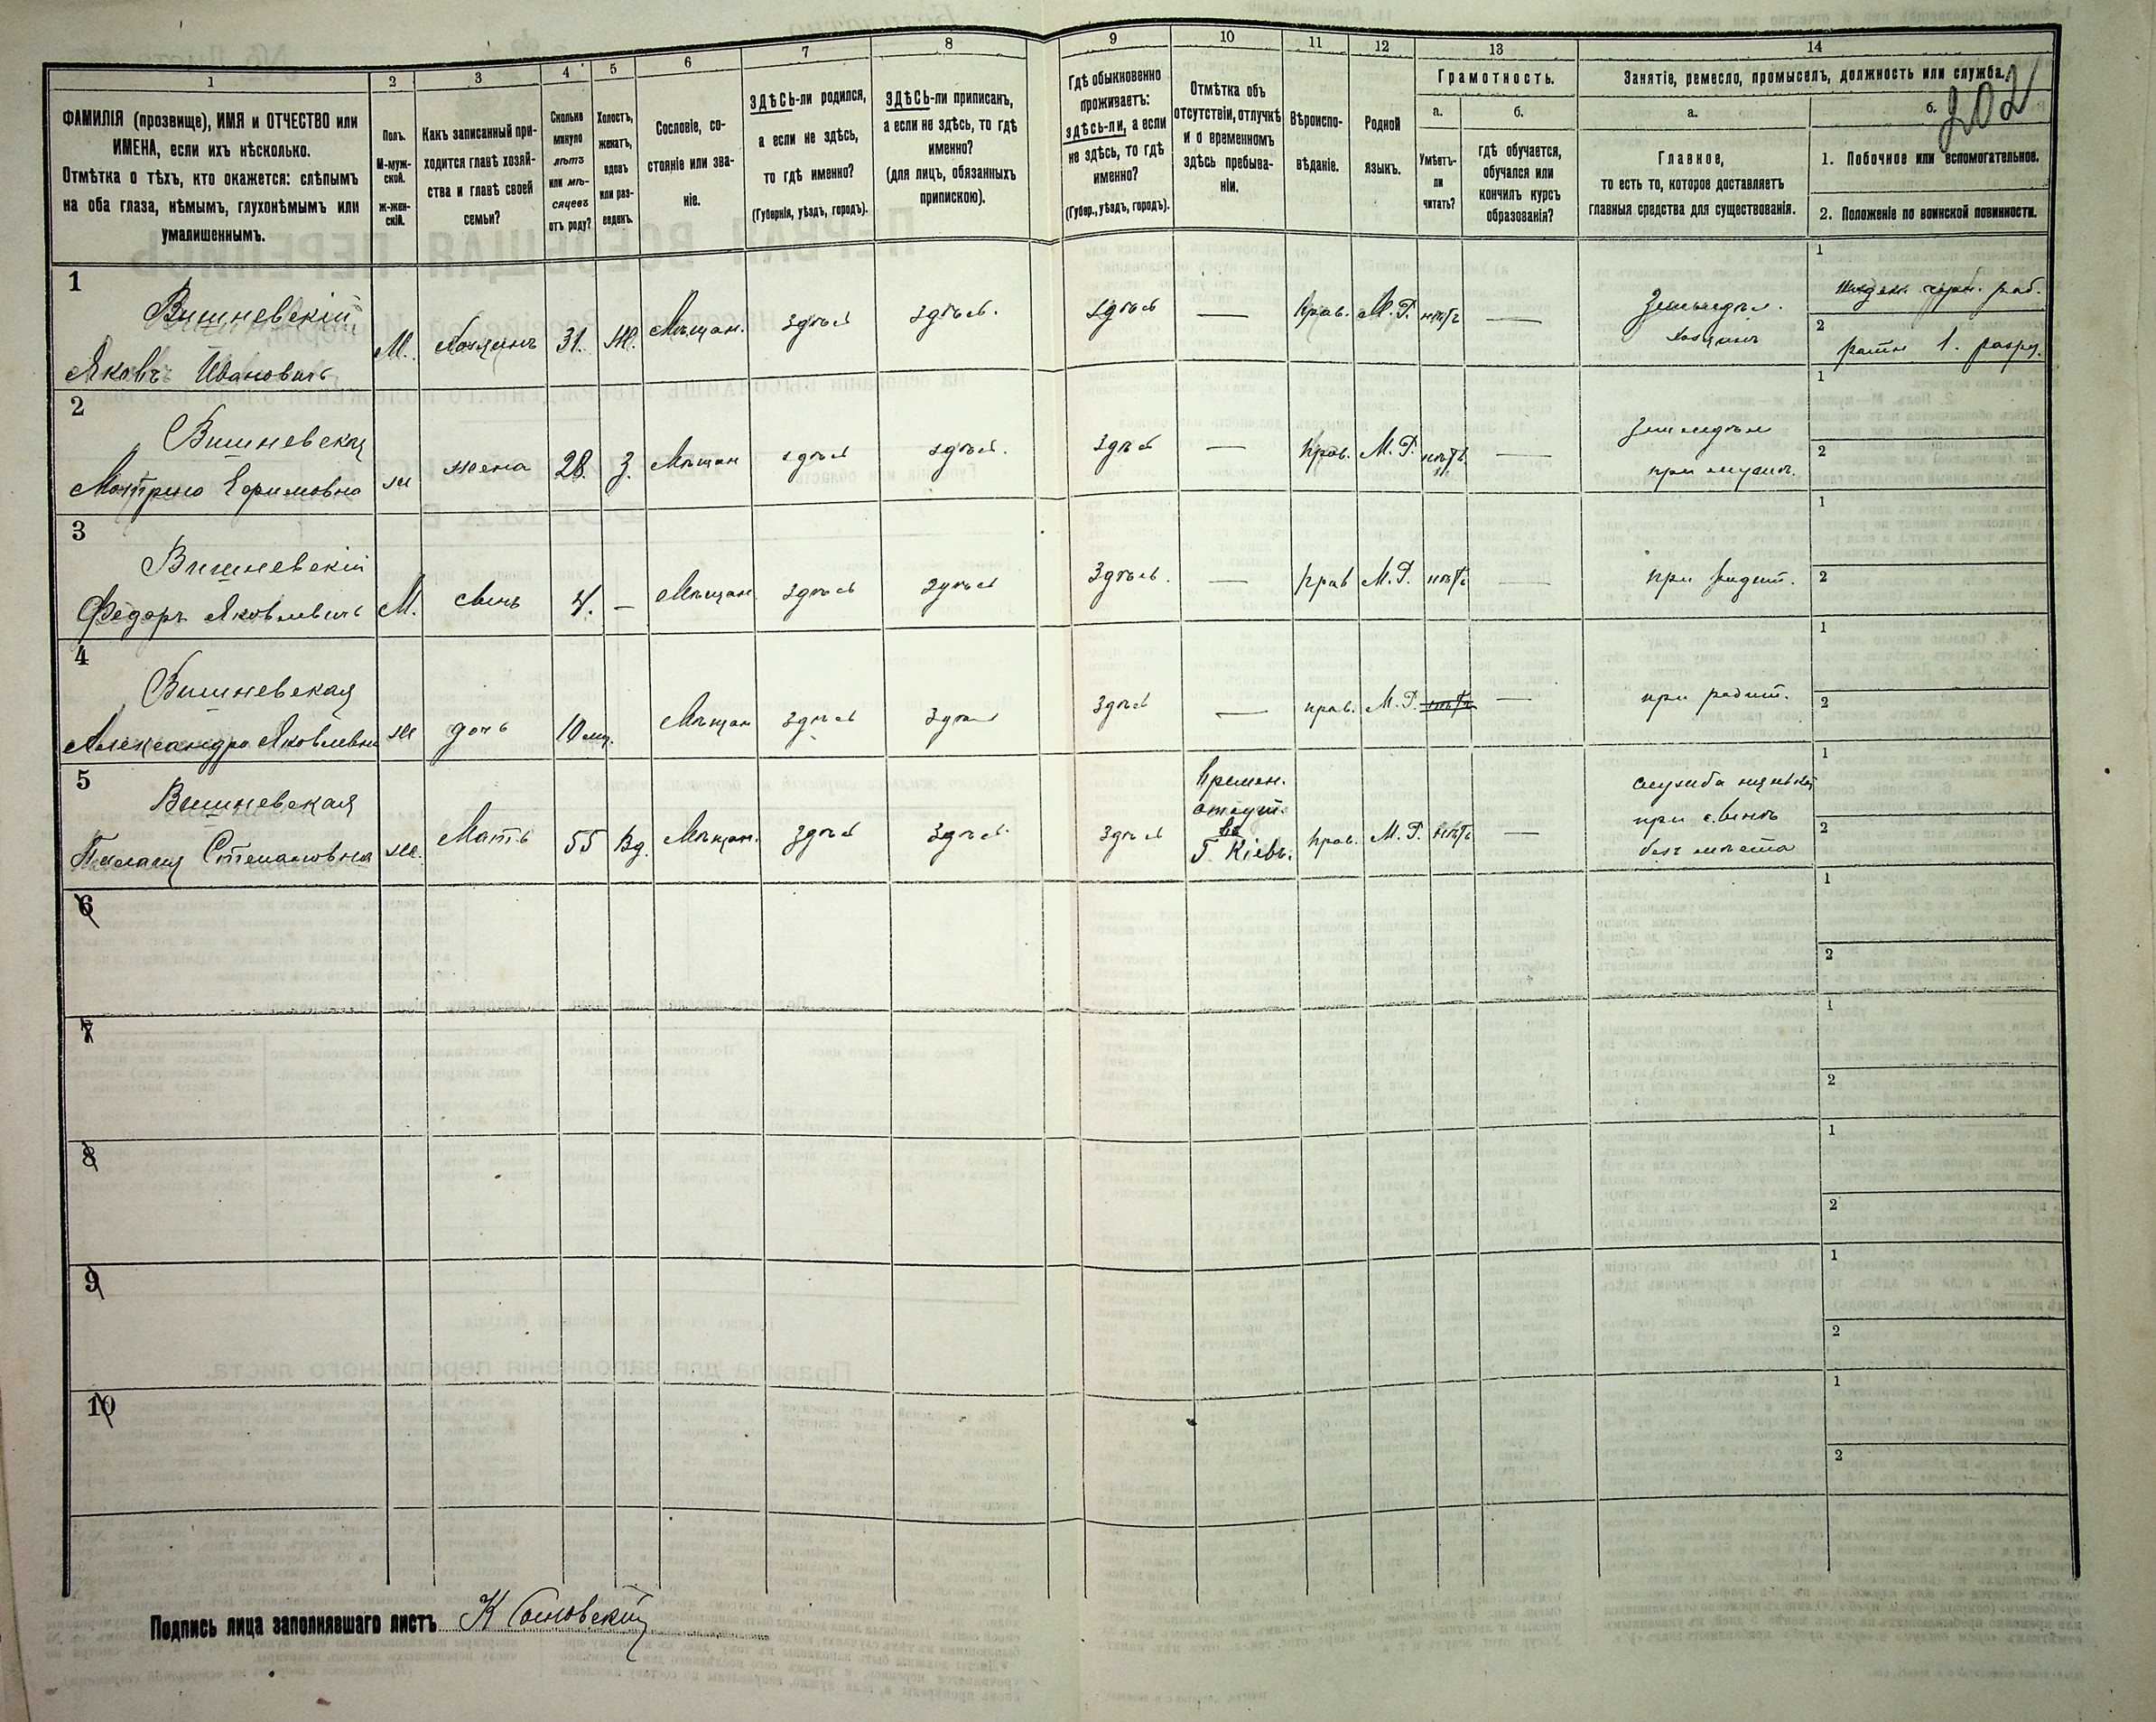 1 2 3 4 5 6 7 8 9 10 11 12 13 14
ФАМИЛІЯ (прозвище), ИМЯ и ОТЧЕСТВО или
ИМЕНА, если ихъ нѣсколько.
Отмѣтка о тѣхъ, кто окажется: слѣпымъ
на оба глаза, нѣмымъ, глухонѣмымъ или
умалишеннымъ.
Полъ.
М-муж-
ской.
ж-жен-
скій.
Какъ записанный при-
ходится главѣ хозяй-
ства и главѣ своей
семьи?
Сколько
минуло
лѣтъ
или мѣ-
сяцевъ
отъ роду?
Холостъ,
женатъ,
вдовъ
или раз-
веденъ.
Сословіе, со-
стояніе или зва-
ніе.
ЗДѢСЬ-ли родился,
а если не здѣсь,
то гдѣ именно?
(Губернія, уѣздъ, городъ).
ЗДѢСЬ-ли приписанъ,
а если не здѣсь, то гдѣ
именно?
(для лицъ, обязанныхъ
припискою).
Гдѣ обыкновенно
проживаетъ:
здѣсь-ли, а если
не здѣсь, то гдѣ
именно?
(Губер., уѣздъ, городъ).
Отмѣтка объ
отсутствіи, отлучкѣ
и о временномъ
здѣсь пребыва-
ніи.
Вѣроиспо-
вѣданіе.
Родной
языкъ.
Грамотность.
а.
Умѣетъ-
ли
читать?
б.
гдѣ обучается,
обучался или
кончилъ курсъ
образованія?
Занятіе, ремесло, промыселъ, должность или служба.
а.
Главное,
то есть то, которое доставляетъ
главныя средства для существованія.
б.
202
1. Побочное или вспомогательное.
2. Положеніе по воинской повинности.
1
Вишневскій
Яковъ Ивановичъ
М. хозяинъ 31. Ж. Мѣщан. здѣсь здѣсь. здѣсь — прав. М. Р. нѣтъ —
земледѣл.
хозяинъ
1
поден. чорн. раб.
2
ратн 1. разр.
2
Вишневская
Матрина Ефимовна
ж жена 28. З. Мѣщан здѣсь здѣсь. здѣсь — прав. М. Р. нѣтъ. —
земледѣл
при мужѣ.
1
2
3
Вишневскій
Федоръ Яковлевичъ
М. сынъ 4. — Мѣщан. здѣсь здѣсь здѣсь. — прав М. Р. нѣтъ —
при родит.
1
2
4
Вишневская
Александра Яковлевна
ж дочь 10 мц. Мѣщан здѣсь здѣсь здѣсь — прав. М. Р. нѣтъ —
при родит.
1
2
5
Вишневская
Пелагия Степановна
ж. Мать 55 Вд. Мѣщан. здѣсь здѣсь. здѣсь
Времен.
отсут.
въ
Г. Кіевъ.
прав. М. Р. нѣтъ —
служба
при сынѣ
1
2
6
1
2
7
1
2
8
1
2
9
1
2
10
1
2
Подпись лица заполнявшаго листъ К Сосновскій